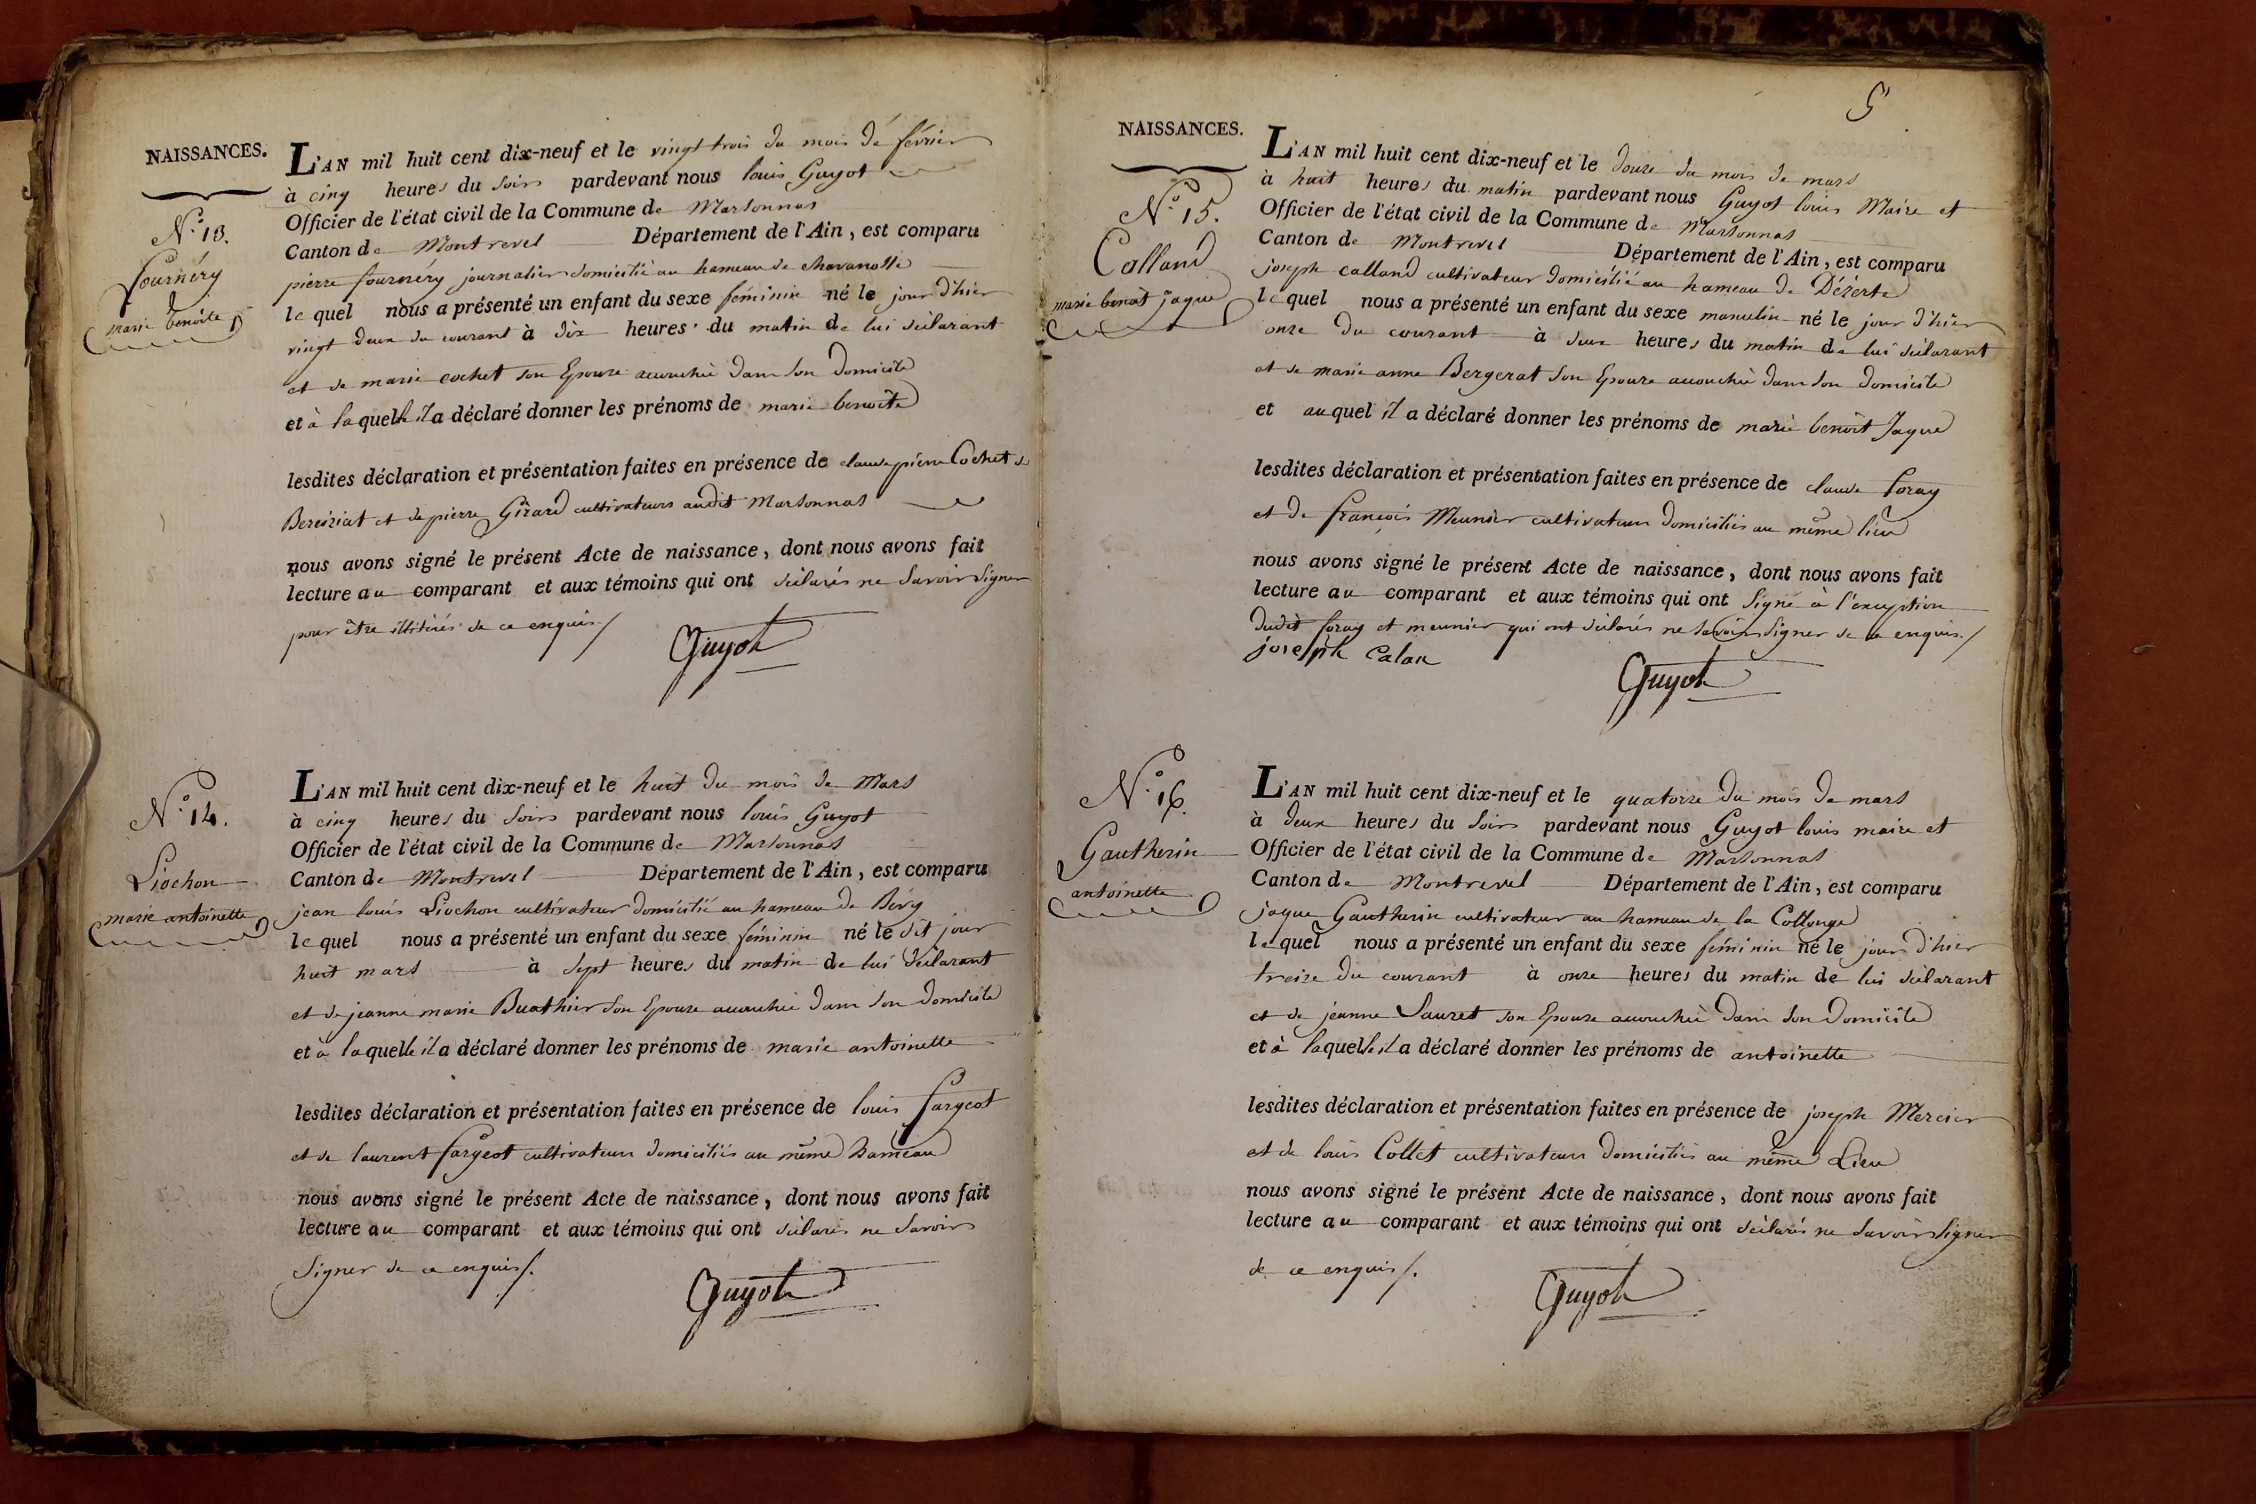 NAISSANCES.
N.º 13.
fournéry
marie benoîte
L'AN mil huit cent dix-neuf et le vingt trois du mois de février
à cinq heures du soir pardevant nous louis Guyot
Officier de l'état civil de la Commune de Marsonnas
Canton de Montrevel Département de l'Ain, est comparu
pierre fournéry journalier domicilié au hameau de chavanolle
lequel nous a présenté un enfant du sexe féminin né le jour d'hier
vingt deux du courant à dix heures du matin de lui déclarant
et de marie cochet son Epouse accouchée dans son domicile
et à laquelle il a déclaré donner les prénoms de marie benoîte
lesdites déclaration et présentation faites en présence de claude pierre Cochet de
Bereiziat et de pierre Girard cultivateurs audit Marsonnas
nous avons signé le présent Acte de naissance, dont nous avons fait
lecture au comparant et aux témoins qui ont déclarés ne Savoir Signer
pour être illitérés de ce enquis./
Guyot
N.º 14.
Liochon
marie antoinette
L'AN mil huit cent dix-neuf et le huit du mois de Mars
à cinq heures du soir pardevant nous louis Guyot
Officier de l'état civil de la Commune de Marsonnas
Canton de Montrevel Département de l'Ain, est comparu
jean louis Liochon cultivateur domicilié au hameau de Bévy
lequel nous a présenté un enfant du sexe féminin né le dit jour
huit mars à sept heures du matin de lui déclarant
et de jeanne marie Buathier son Epouse accouchée dans son domicile
et à laquelle il a déclaré donner les prénoms de marie antoinette
lesdites déclaration et présentation faites en présence de louis fargeot
et de laurent fargeot cultivateurs domiciliés au même hameau
nous avons signé le présent Acte de naissance, dont nous avons fait
lecture au comparant et aux témoins qui ont déclarés ne Savoir
Signer de ce enquis/.
Guyot
5
NAISSANCES.
N.º 15.
Calland
marie benoit jaque
L'AN mil huit cent dix-neuf et le douze du mois de mars
à huit heures du matin pardevant nous Guyot louis Maire et
Officier de l'état civil de la Commune de Marsonnas
Canton de Montrevel Département de l'Ain, est comparu
joseph calland cultivateur domicilié au hameau de Dézerte
lequel nous a présenté un enfant du sexe masculin né le jour d'hier
onze du courant à deux heures du matin de lui déclarant
et de marie anne Bergerat son Epouse accouchée dans son domicile
et auquel il a déclaré donner les prénoms de marie benoit Jaque
lesdites déclaration et présentation faites en présence de claude foray
et de françois Meunier cultivateurs domiciliés au même lieu
nous avons signé le présent Acte de naissance, dont nous avons fait
lecture au comparant et aux témoins qui ont Signé à l'exception
dudit foray et meunier qui ont déclarés ne savoir signer de ce enquis./
joseph Calan
Guyot
N.º 16.
Gautherin
antoinette
L'AN mil huit cent dix-neuf et le quatorze du mois de mars
à deux heures du soir pardevant nous Guyot louis maire et
Officier de l'état civil de la Commune de Marsonnas
Canton de Montrevel Département de l'Ain, est comparu
jaque Gautherin cultivateur au hameau de la Collonge
lequel nous a présenté un enfant du sexe féminin né le jour d'hier
treize du courant à onze heures du matin de lui déclarant
et de jeanne Sauret son Epouse accouchée dans son domicile
et à laquelle il a déclaré donner les prénoms de antoinette
lesdites déclaration et présentation faites en présence de joseph Mercier
et de louis Collet cultivateurs domiciliés au même Lieu
nous avons signé le présent Acte de naissance, dont nous avons fait
lecture au comparant et aux témoins qui ont déclarés ne savoir Signer
de ce enquis/.
Guyot